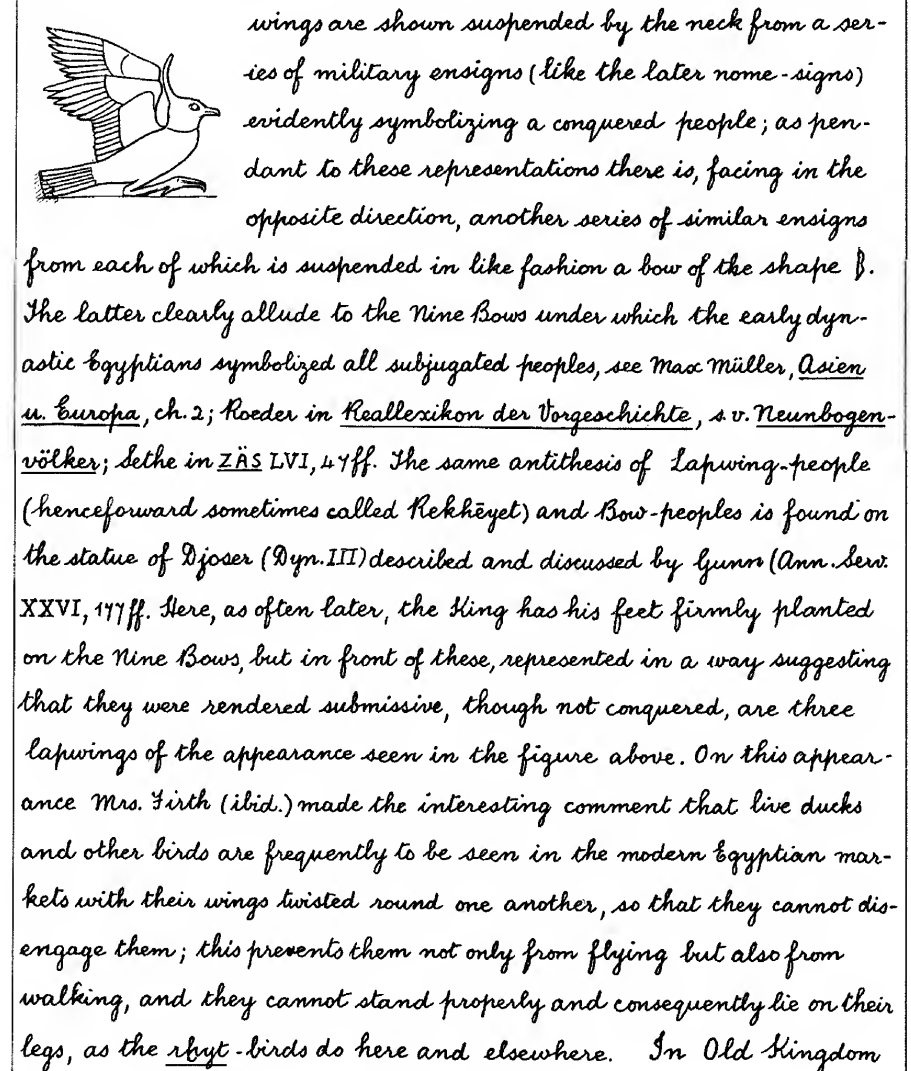 wings are shown suspended by the neck from a ser-
ies of military ensigns (like the later nome-signs)
evidently symbolizing a conquered people; as pen-
dant to these representations there is, facing in the
opposite direction, another series of similar ensigns
from each of which is suspended in like fashion a bow of the shape .
The latter clearly allude to the Nine Bows under which the early dyn-
astic Egyptians symbolized all subjugated peoples, see Max Müller, Asien
u. Europa, ch. 2; Roeder in Reallexikon der Vorgeschichte, s.v. Neunbogen-
völker; Sethe in ZÄS LVI, 47ff. The same antithesis of Lapwing-people
(henceforward sometimes called Rekhēyet) and Bow-peoples is found on
the statue of Djoser (Dyn. III) described and discussed by Gunn (Ann. Serv.
XXVI, 177ff. Here, as often later, the King has his feet firmly planted
on the Nine Bows, but in front of these, represented in a way suggesting
that they were rendered submissive, though not conquered, are three
lapwings of the appearance seen in the figure above. On this appear-
ance Mrs. Firth (ibid.) made the interesting comment that live ducks
and other birds are frequently to be seen in the modern Egyptian mar-
kets with their wings twisted round one another, so that they cannot dis-
engage them; this prevents them not only from flying but also from
walking, and they cannot stand properly and consequently lie on their
legs, as the rhyt-birds do here and elsewhere. In Old Kingdom